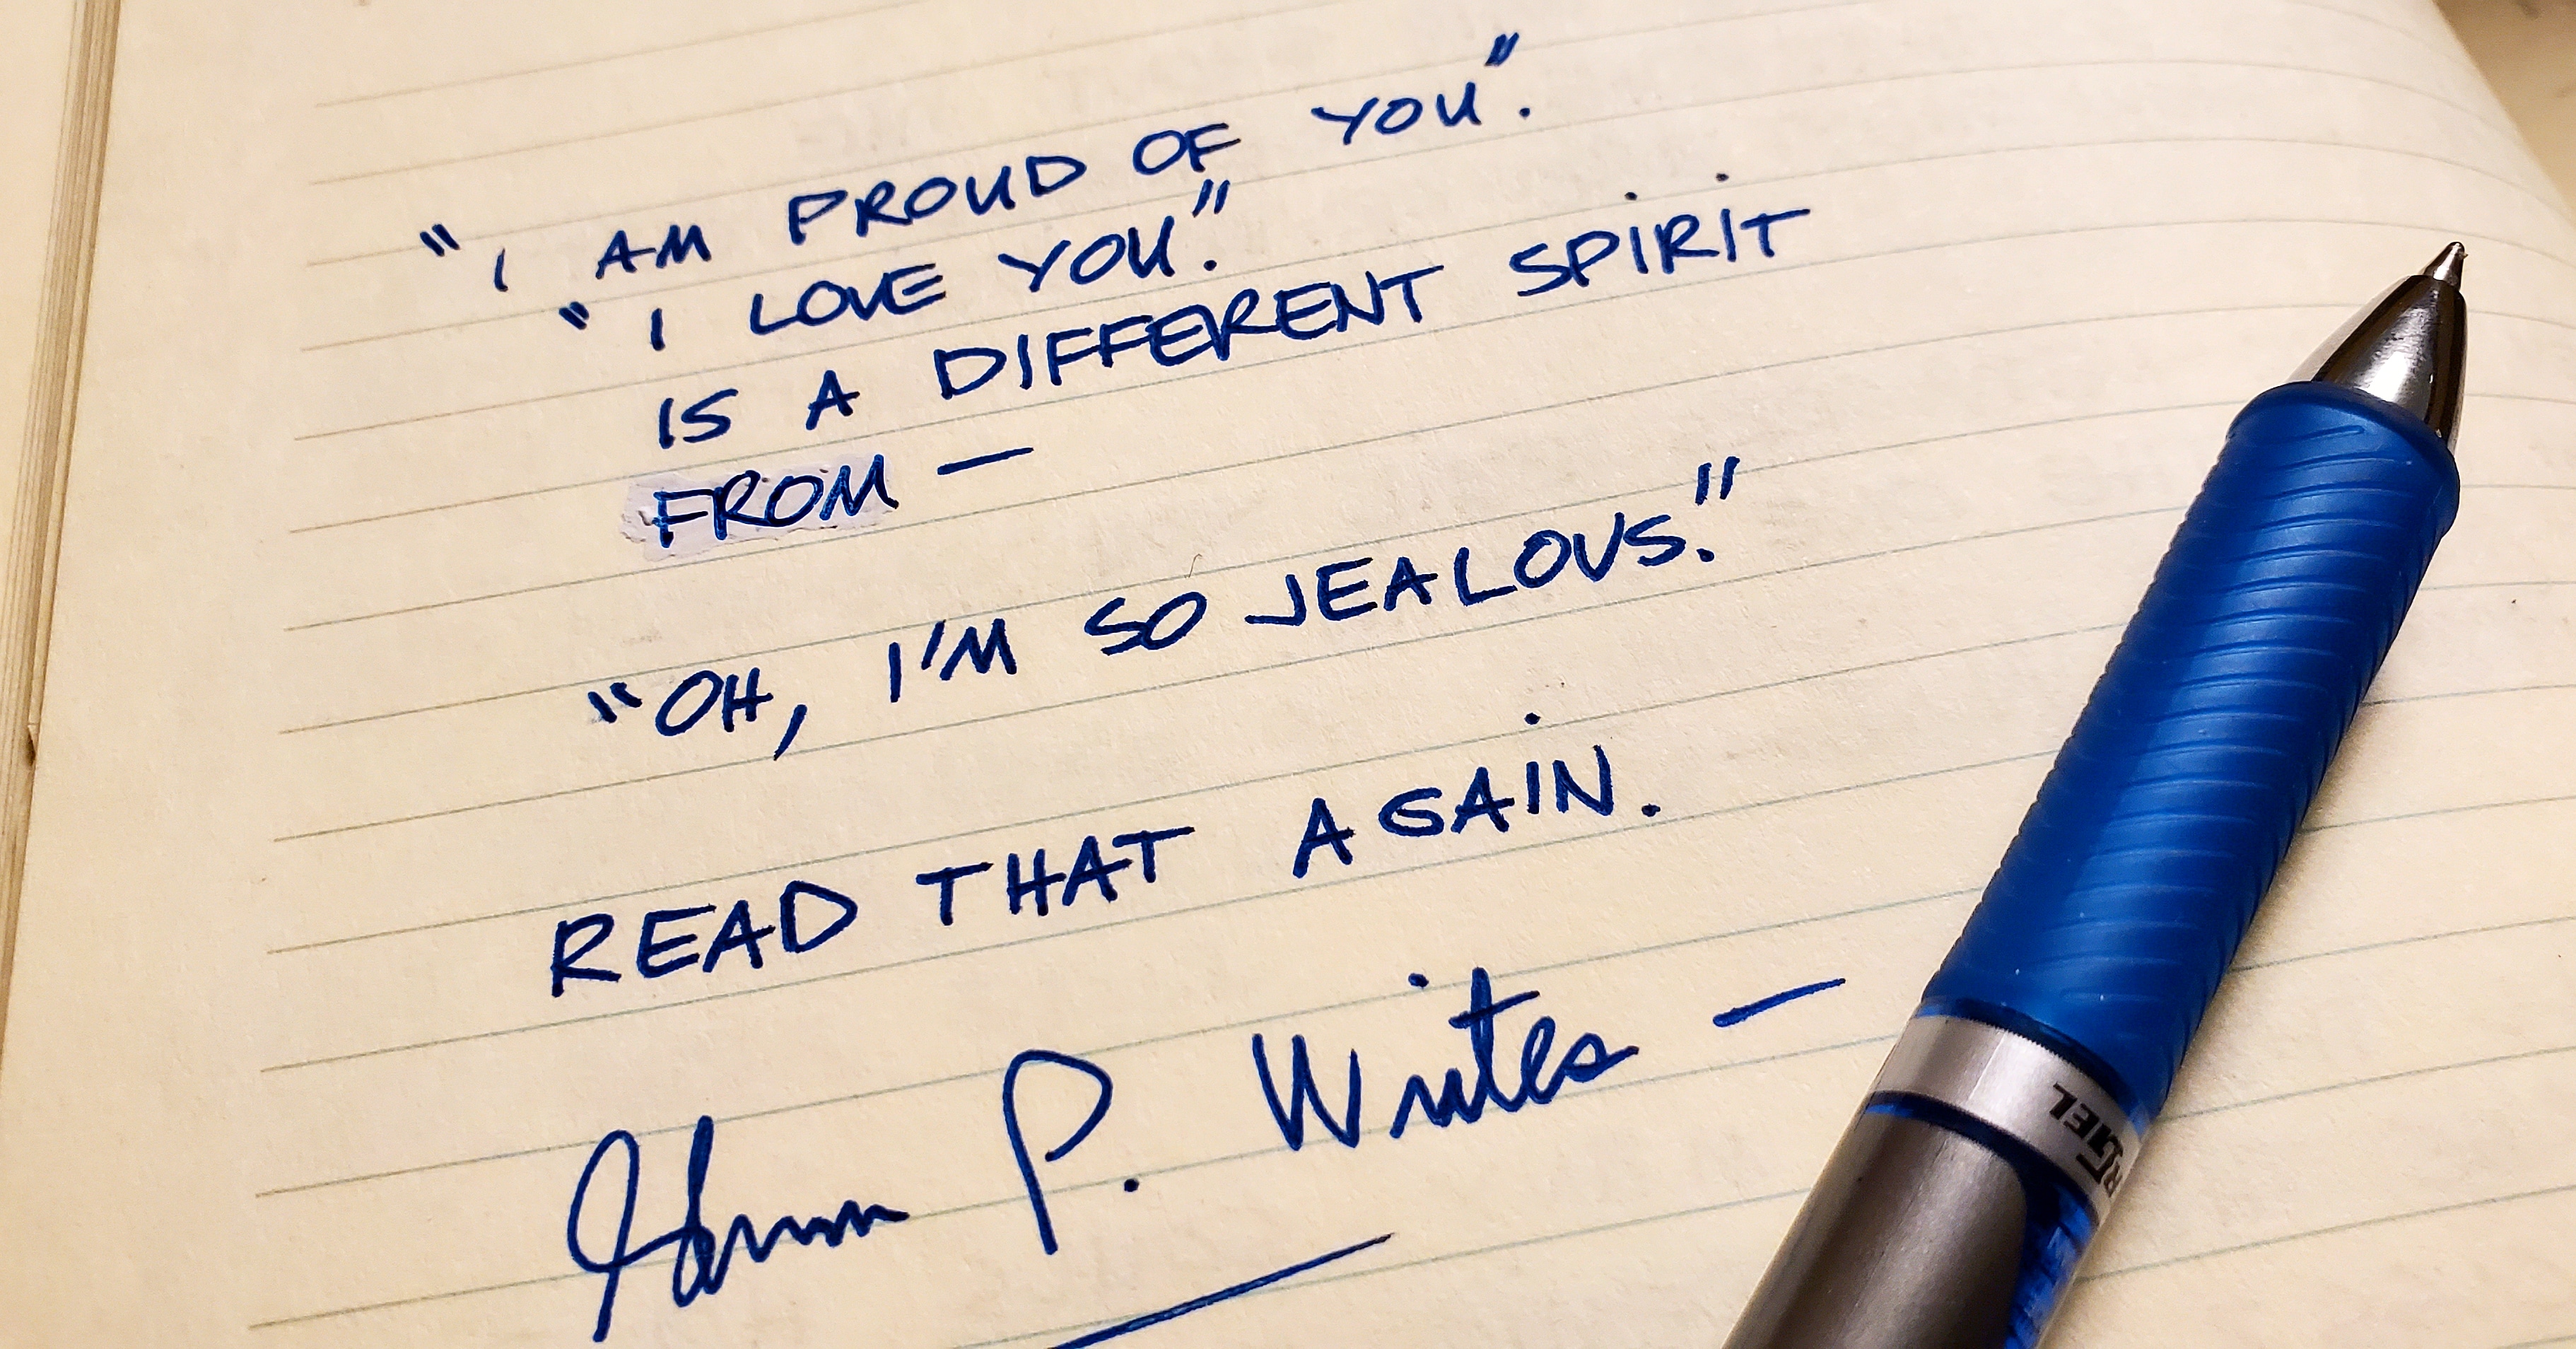 "I AM PROUD OF YOU".
"I LOVE YOU".
IS A DIFFERENT SPIRIT
FROM —
"OH, I'M SO JEALOUS."
READ THAT AGAIN.
P. Writes —